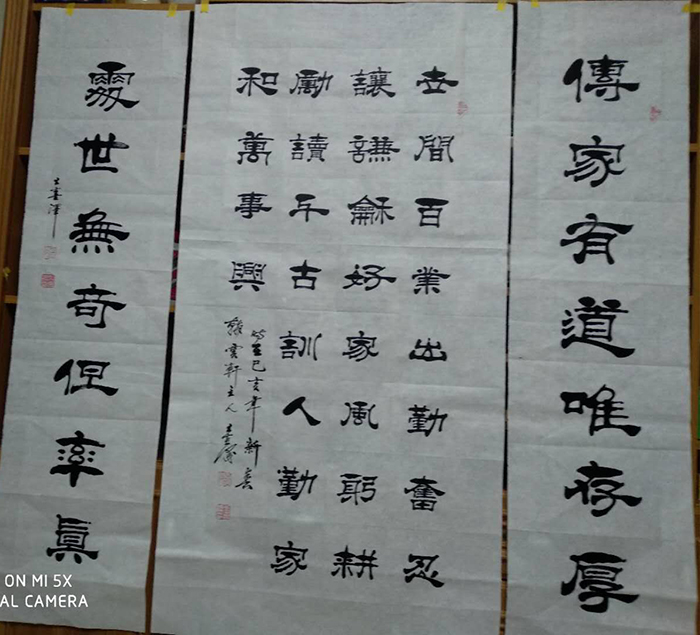 傳家有道唯存厚
世間百業出勤奮忍
讓謙龢好家風躬耕
勵讀千古訓人勤家
和萬事興
己亥年新春
雲軒主人
處世無奇但率眞
ON MI 5X
AL CAMERA